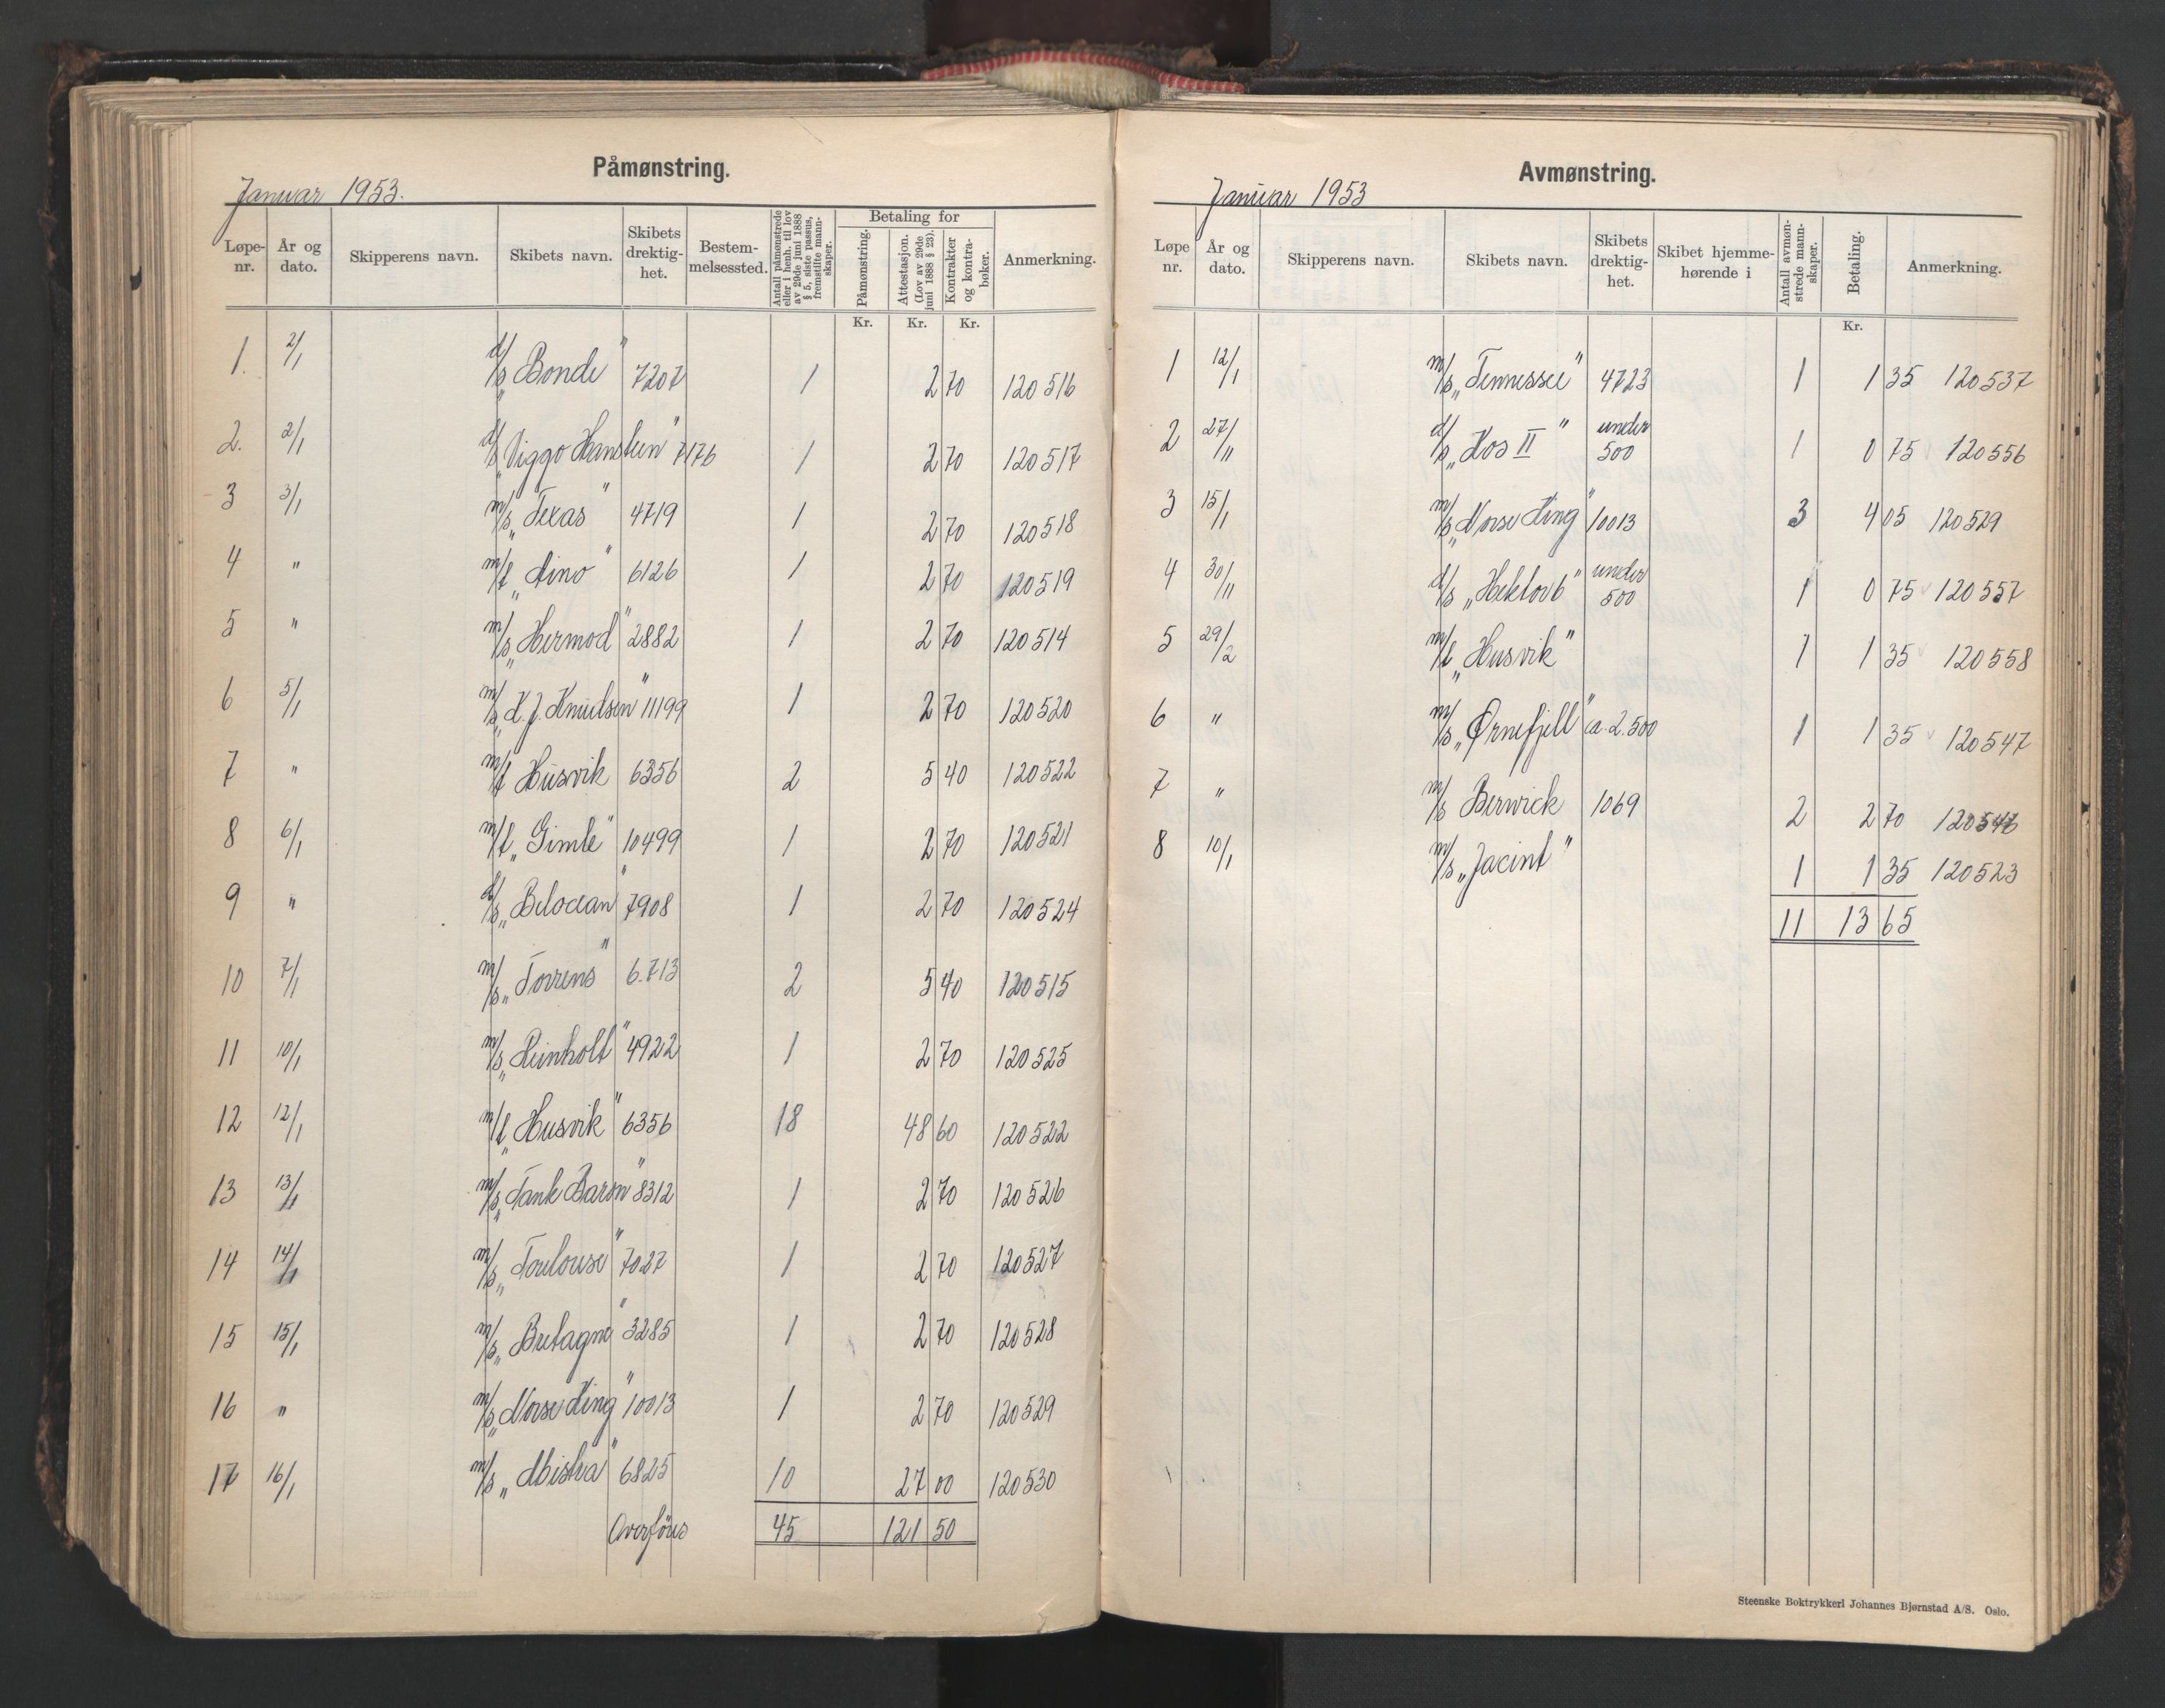 Påmønstring.
Januar 1953.
Løpe-nr. | År og dato. | Skipperens navn. | Skibets navn. | Skibets drektig-het. | Bestem-melsessted. | Antall påmønstrede eller i henh. til lov av 29de juni 1888 § 5, siste passus, fremstilte mann-skaper. | Betaling for | Påmønstring. | Attestasjon. (Lov av 29de juni 1888 § 23). | Kontrakter og kontra-bøker. | Anmerkning.
Kr. Kr. Kr.
1. 2/1 d/s „Bonde" 7207 1 2 70 120516
2. 2/1 d/s „Viggo Hansteen" 7176 1 2 70 120517
3 3/1 m/s „Texas" 4719 1 2 70 120518
4 " m/t „Aino" 6126 1 2 70 120519
5 " m/s „Hermod" 2882 1 2 70 120514
6 5/1 m/s „K. J. Knudsen" 11199 1 2 70 120520
7 " m/t Husvik 6356 2 5 40 120522
8 6/1 m/t „Gimle" 10499 1 2 70 120521
9 " d/s „Belocean" 7908 1 2 70 120524
10 7/1 m/s „Torrens" 6.713 2 5 40 120515
11 10/1 m/s „Reinholt" 4922 1 2 70 120525
12 12/1 m/t „Husvik" 6356 18 48 60 120522
13 13/1 m/s „Tank Baron" 8312 1 2 70 120526
14 14/1 m/s „Toulouse" 7027 1 2 70 120527
15 15/1 m/s „Bretagne" 3285 1 2 70 120528
16 " m/s „Norse King" 10013 1 2 70 120529
17 16/1 m/s „Abistra" 6825 10 27 00 120530
Overføres 45 121 50
Avmønstring.
Januar 1953
Løpe nr. | År og dato. | Skipperens navn. | Skibets navn. | Skibets drektig-het. | Skibet hjemme-hørende i | Antall avmøn-strede mann-skaper. | Betaling. | Anmerkning.
Kr.
1 12/1 m/s „Tennessee" 4723 1 1 35 120537
2 27/11 d/s „Kos II" under 500 1 0 75 120556
3 15/1 m/s „Norse King" 10013 3 4 05 120529
4 30/11 d/s „Hektor 6" under 500 1 0 75 120557
5 29/2 m/t „Husvik" 1 1 35 120558
6 " m/s „Ørnefjell" ca. 2.500 1 1 35 120547
7 " m/s Berwick 1069 2 2 70
8 10/1 m/s „Jacint" 1 1 35 120523
11 13 65
Steenske Boktrykkeri Johannes Bjørnstad A/S. Oslo.